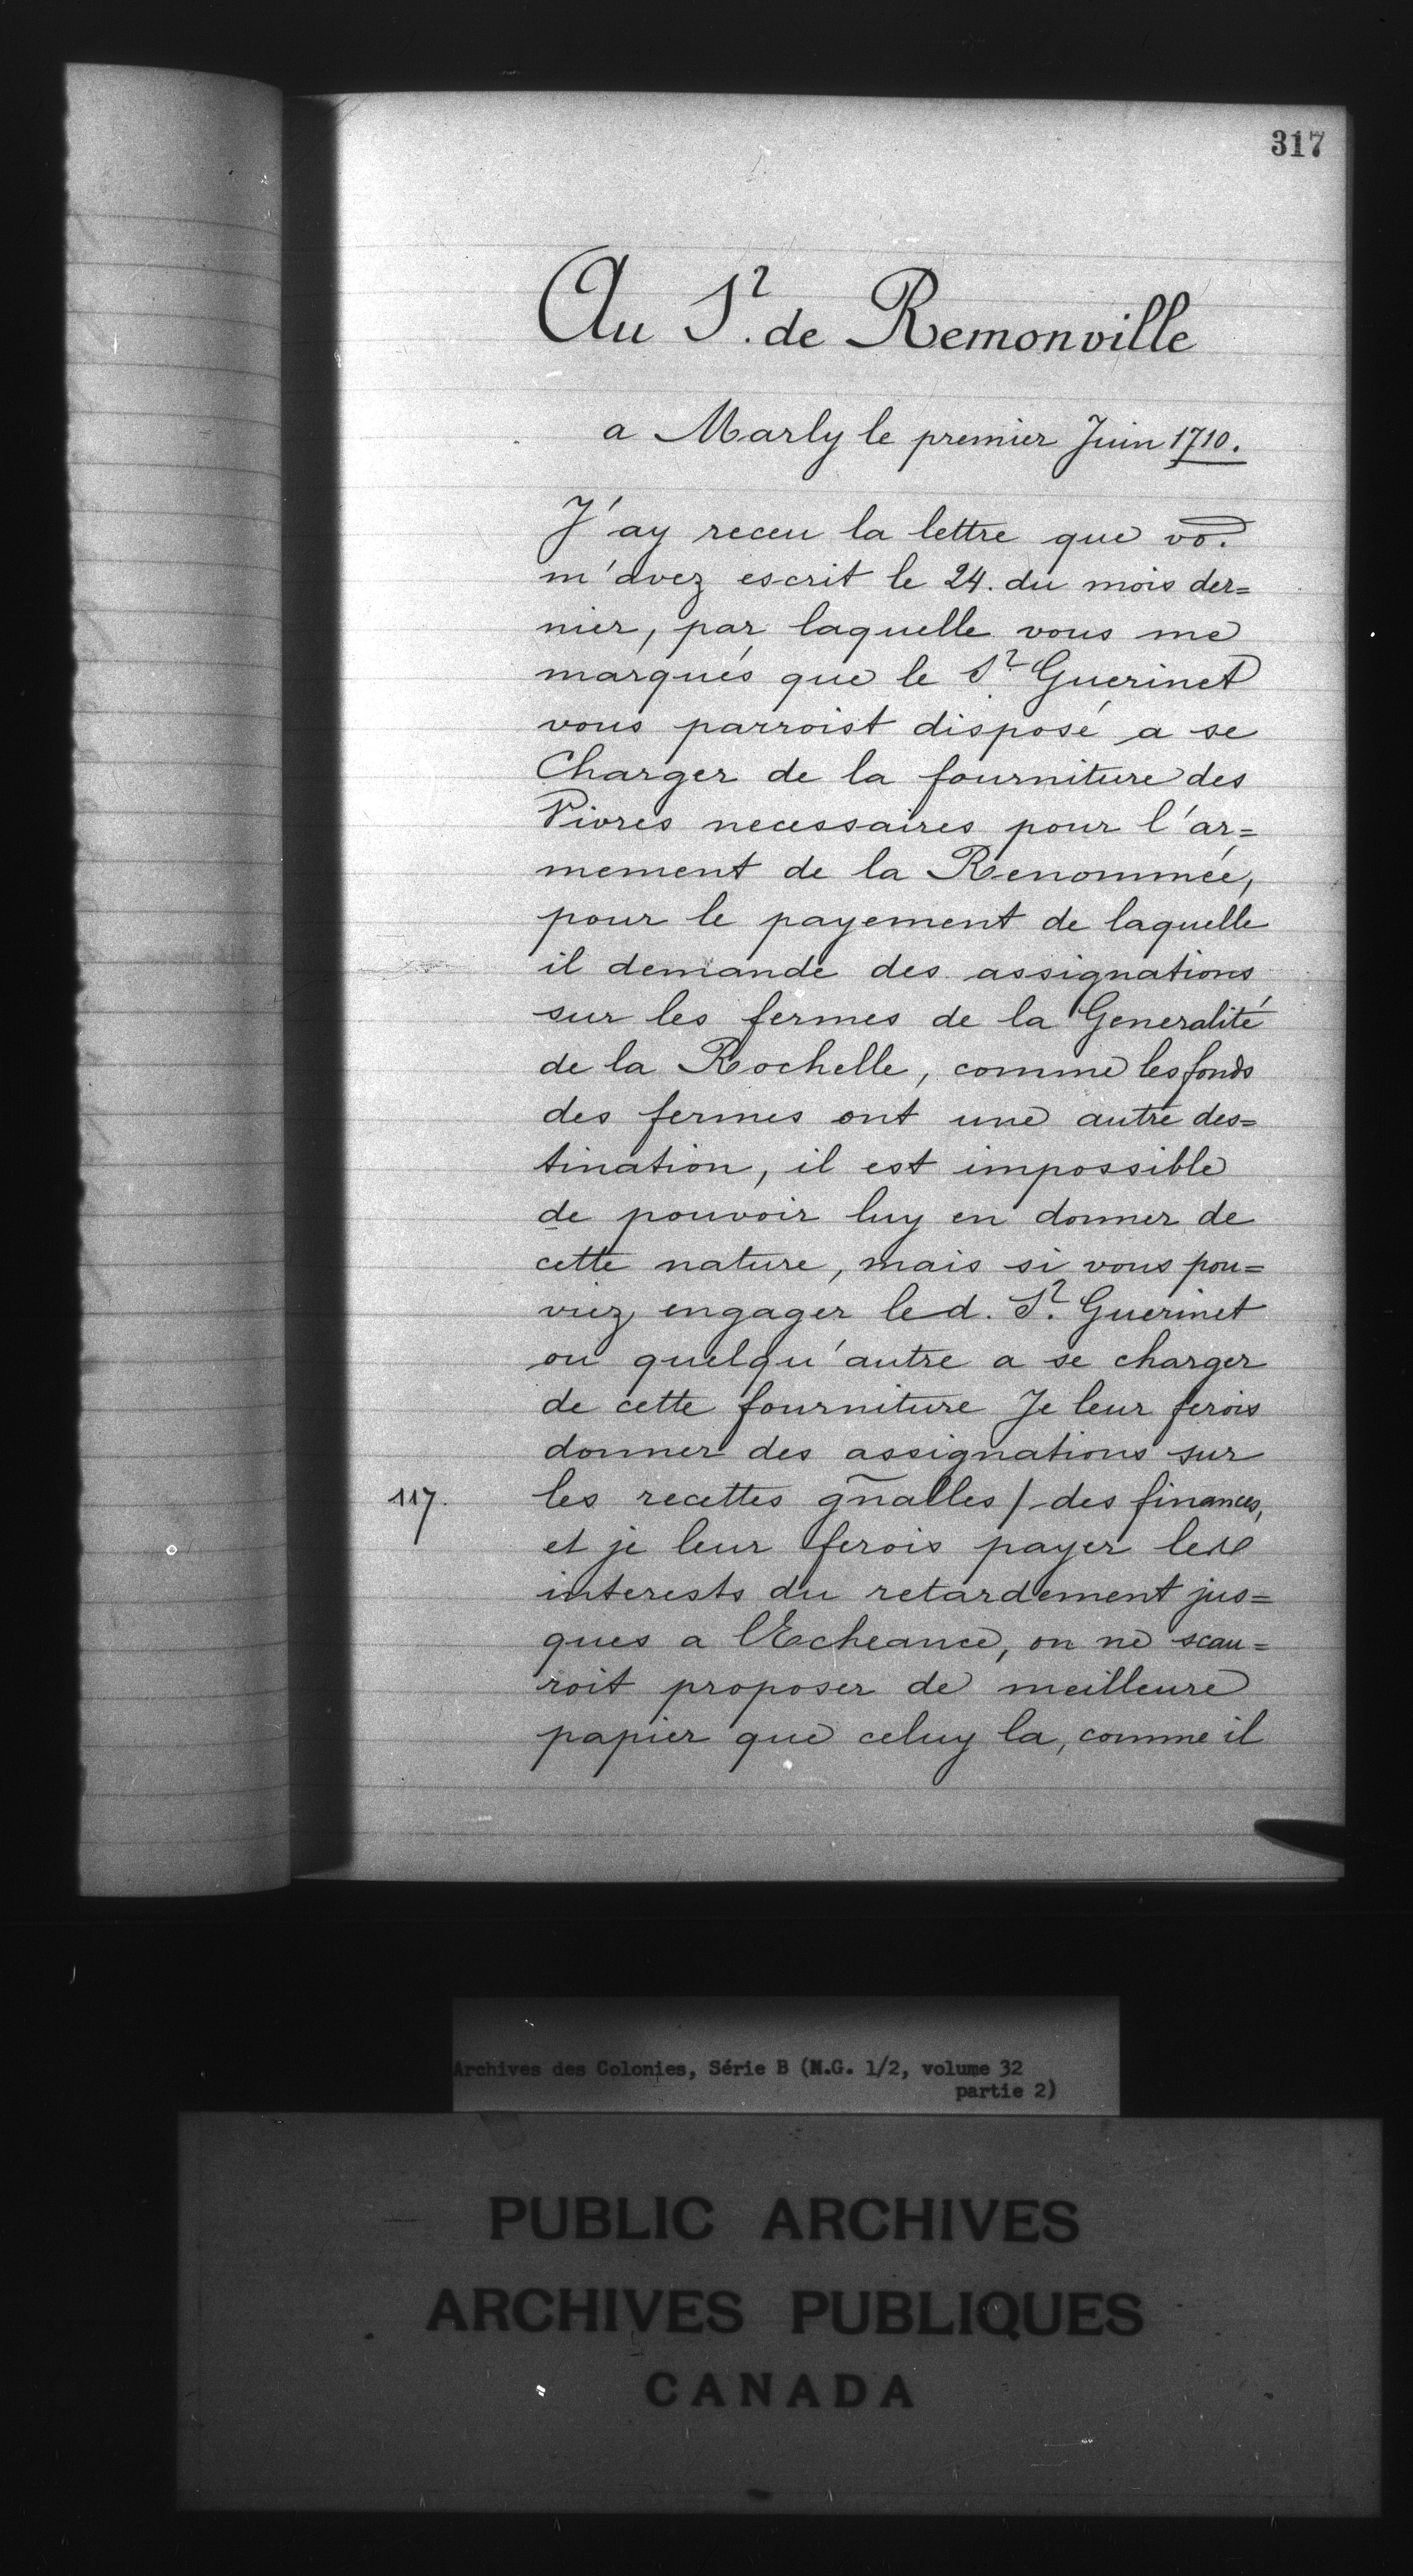 317
Au Sr. de Remonville
a Marly le premier Juin 1710.
J'ay receu la lettre que vo.
m'avez escrit le 24. du mois der=
nier, par laquelle vous me
marqués que le Sr. Guerinet
vous parroist disposé a se
Charger de la fourniture des
Vivres necessaires pour l'ar=
mement de la Renommée,
pour le payement de laquelle
il demande des assignations
sur les fermes de la Generalité
de la Rochelle, comme les fonds
des fermes ont une autre des=
tination, il est impossible
de pouvoir luy en donner de
cette nature, mais si vous pou=
viez engager led. Sr. Guerinet
ou quelqu'autre a se charger
de cette fourniture Je leur ferois
donner des assignations sur
117. les recettes gñalles / des finances,
et je leur ferois payer les
interests du retardement jus=
ques a l'Echeance, on ne scau=
roit proposer de meilleure
papier que celuy la, comme il
Archives des Colonies, Série B (M.G. 1/2, volume 32
partie 2)
PUBLIC ARCHIVES
ARCHIVES PUBLIQUES
CANADA